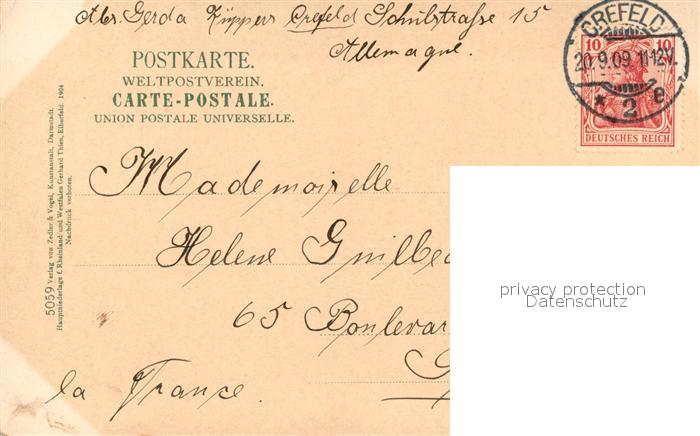 Abs. Gerda Küppers Crefeld Schulstrasse 15
Allemagne.
POSTKARTE.
WELTPOSTVEREIN.
CARTE-POSTALE.
UNION POSTALE UNIVERSELLE.
CREFELD
20.9.09. 11-12V.
* 2 e
10 10
DEUTSCHES REICH
Mademoiselle
Helene Guilbe
65 Boulevar
la France.
5059 Verlag von Zedler & Vogel, Kunstanstalt, Darmstadt.
Hauptniederlage f. Rheinland und Westfalen Gerhard Thien, Elberfeld. 1904
Nachdruck verboten.
privacy protection
Datenschutz